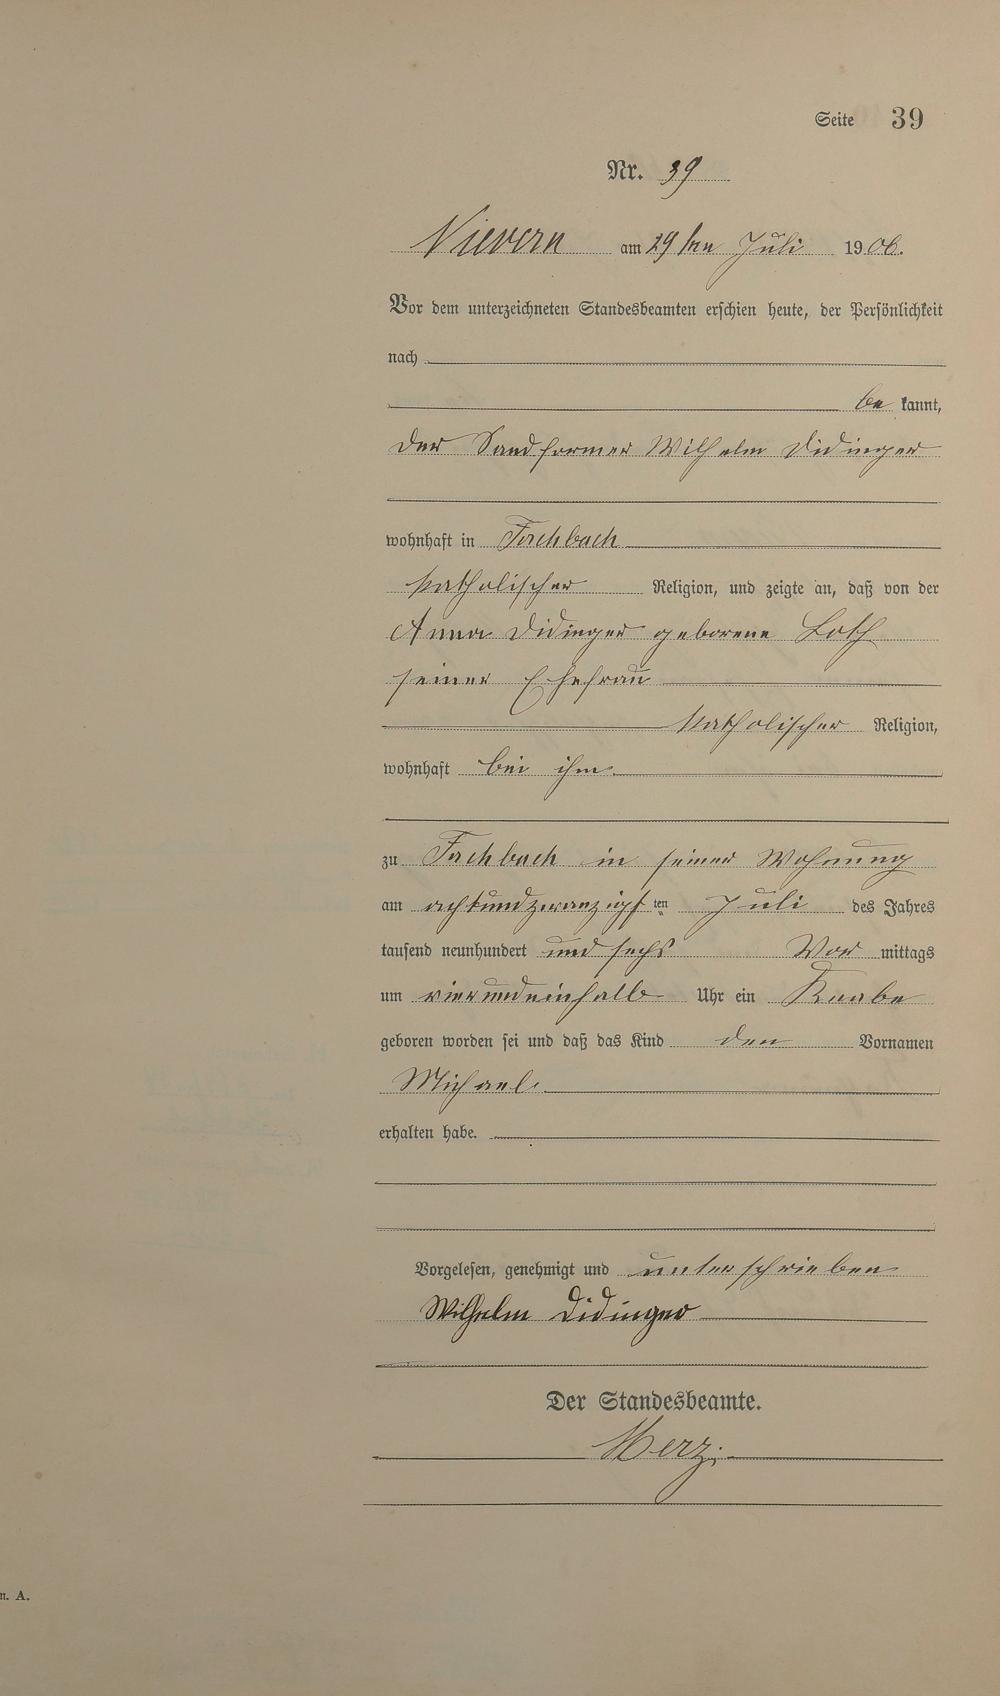 Seite 39
Nr. 39
Nievern am 29ten Juli 1906.
Vor dem unterzeichneten Standesbeamten erschien heute, der Persönlichkeit
nach
be kannt,
der Sandformer Wilhelm Didinger
wohnhaft in Fachbach
katholischer Religion, und zeigte an, daß von der
Anna Didinger geborene Loth
seiner Ehefrau
katholischer Religion,
wohnhaft bei ihm
zu Fachbach in seiner Wohnung
am achtundzwanzigsten Juli des Jahres
tausend neunhundert und sechs Vor mittags
um vierundeinhalb Uhr ein Knabe
geboren worden sei und daß das Kind den Vornamen
Michael
erhalten habe.
Vorgelesen, genehmigt und unterschrieben
Wilhelm Didinger
Der Standesbeamte.
Merz
n. A.